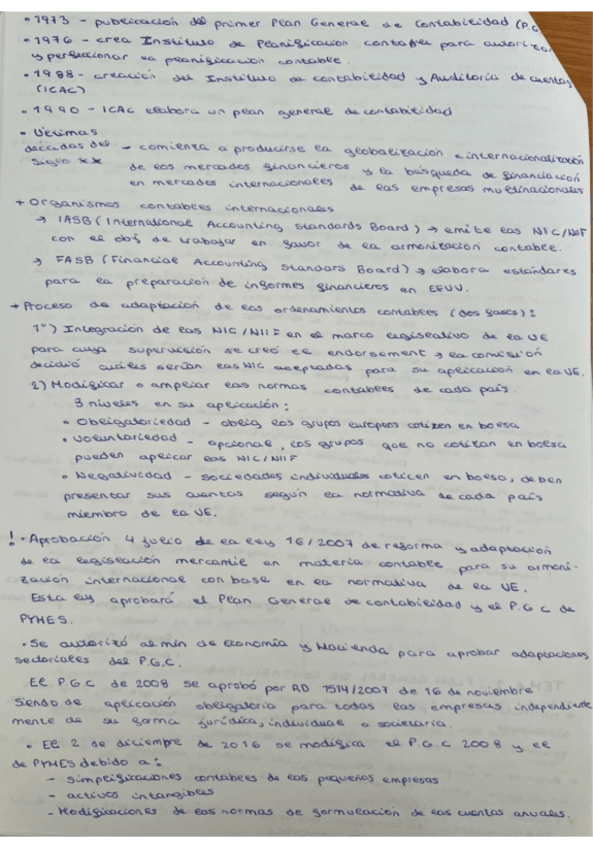 • 1973 - publicación del primer Plan General de Contabilidad (P.G
• 1976 - crea Instituto de Planificación contable para autorizar
y perfeccionar la planificación contable.
• 1988 - creación del Instituto de contabilidad y Auditoría de cuentas
(ICAC)
• 1990 - ICAC elabora un plan general de contabilidad
• Últimas
décadas del - comienza a producirse la globalización e internacionalización
siglo XX de los mercados financieros y la búsqueda de financiación
en mercados internacionales de las empresas multinacionales
+ Organismos contables internacionales
→ IASB (International Accounting Standards Board) → emite las NIC/NIIF
con el obj de trabajar en favor de la armonización contable.
→ FASB (Financial Accounting Standars Board) → elabora estándares
para la preparación de informes financieros en EEUU.
+ Proceso de adaptación de los ordenamientos contables (dos fases):
1º) Integración de las NIC/NIIF en el marco legislativo de la UE
para cuya supervisión se creó el endorsement → la comisión
decidió cuáles serían las NIC aceptadas para su aplicación en la UE.
2) Modificar o ampliar las normas contables de cada país.
3 niveles en su aplicación:
• Obligatoriedad - oblig los grupos europeos cotizen en bolsa
• Voluntariedad - opcional, los grupos que no cotizan en bolsa
pueden aplicar las NIC/NIIF
• Negatividad - sociedades individuales cotizen en bolsa, deben
presentar sus cuentas según la normativa de cada país
miembro de la UE.
! • Aprobación 4 julio de la ley 16/2007 de reforma y adaptación
de la legislación mercantil en materia contable para su armoni-
zación internacional con base en la normativa de la UE.
Esta ley aprobará el Plan General de contabilidad y el P.G.C de
PYMES.
• Se autorizó al min de Economía y Hacienda para aprobar adaptaciones
sectoriales del P.G.C.
El P.G.C de 2008 se aprobó por RD 1514/2007 de 16 de noviembre
siendo de aplicación obligatoria para todas las empresas independiente
mente de su forma jurídica, individual o societaria.
• El 2 de diciembre de 2016 se modifica el P.G.C 2008 y el
de PYMES debido a:
- simplificaciones contables de las pequeñas empresas
- activos intangibles
- Modificaciones de las normas de formulación de las cuentas anuales.